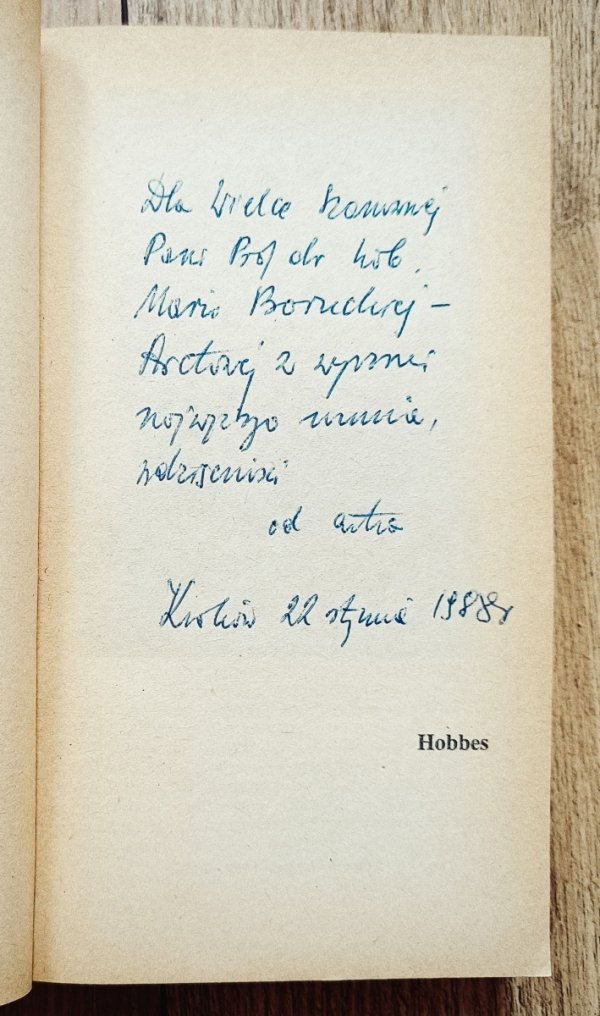 Dla Wielce Szanownej
Pani Prof dr hab.
Marii Boruckiej-
Arctowej z wyrazami
najwyższego uznania,
wdzięczności
od autora
Kraków 22 stycznia 1988r
Hobbes